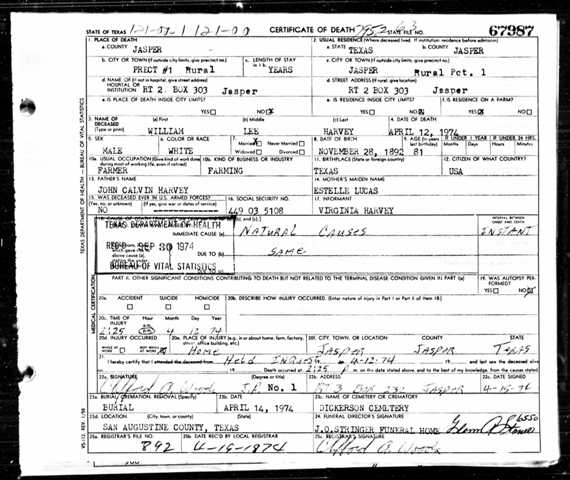 STATE OF TEXAS CERTIFICATE OF DEATH STATE FILE NO. 67987
1. PLACE OF DEATH 2. USUAL RESIDENCE (Where deceased lived. If institution: residence before admission)
a. COUNTY JASPER a. STATE TEXAS b. COUNTY JASPER
b. CITY OR TOWN (If outside city limits, give precinct no.) c. LENGTH OF STAY c. CITY OR TOWN (If outside city limits, give precinct no.)
PRECT #1 Rural YEARS JASPER Rural Pct. 1
d. NAME OF (If not in hospital, give street address) d. STREET ADDRESS (If rural, give location)
HOSPITAL OR INSTITUTION RT 2 BOX 303 Jasper RT 2 BOX 303 Jasper
e. IS PLACE OF DEATH INSIDE CITY LIMITS? e. IS RESIDENCE INSIDE CITY LIMITS? f. IS RESIDENCE ON A FARM?
YES NO YES NO YES NO
3. NAME OF DECEASED (Type or print) (a) First (b) Middle (c) Last 4. DATE OF DEATH
WILLIAM LEE HARVEY APRIL 12, 1974
5. SEX 6. COLOR OR RACE 7. Married Never Married 8. DATE OF BIRTH 9. AGE (In years last birthday) IF UNDER 1 YEAR IF UNDER 24 HRS.
Months Days Hours Min.
MALE WHITE Widowed Divorced NOVEMBER 28, 1892 81
10a. USUAL OCCUPATION (Give kind of work done during most of working life, even if retired) 10b. KIND OF BUSINESS OR INDUSTRY 11. BIRTHPLACE (State or foreign country) 12. CITIZEN OF WHAT COUNTRY?
FARMER FARMING TEXAS USA
13. FATHER'S NAME 14. MOTHER'S MAIDEN NAME
JOHN CALVIN HARVEY ESTELLE LUCAS
15. WAS DECEASED EVER IN U.S. ARMED FORCES? 16. SOCIAL SECURITY NO. 17. INFORMANT
(Yes, no, or unknown) (If yes, give war or dates of service)
NO 449 03 5108 VIRGINIA HARVEY
TEXAS DEPARTMENT OF HEALTH INTERVAL BETWEEN ONSET AND DEATH
IMMEDIATE CAUSE (a) Natural Causes INSTANT
REC'D SEP 30 1974 DUE TO (b) SAME
BUREAU OF VITAL STATISTICS
PART II. OTHER SIGNIFICANT CONDITIONS CONTRIBUTING TO DEATH BUT NOT RELATED TO THE TERMINAL DISEASE CONDITION GIVEN IN PART I (a) 19. WAS AUTOPSY PERFORMED?
YES NO
20a. ACCIDENT SUICIDE HOMICIDE 20b. DESCRIBE HOW INJURY OCCURRED. (Enter nature of injury in Part I or Part II of item 18)
20c. TIME OF INJURY Hour Month Day Year
2:25 4 12 74
20d. INJURY OCCURRED 20e. PLACE OF INJURY (e.g., in or about home, farm, factory, street, office building, etc.) 20f. CITY, TOWN, OR LOCATION COUNTY STATE
Home Jasper Jasper Texas
21. I hereby certify that I attended the deceased from Held Inquest 4-12-74 and last saw the deceased alive
Death occurred at 2:25 P
22a. SIGNATURE (Degree or title) 22b. ADDRESS 22c. DATE SIGNED
Clifford A. Woods J.P. No. 1 RT 3 Box 232 Jasper 4-15-74
23a. BURIAL, CREMATION, REMOVAL (Specify) 23b. DATE 23c. NAME OF CEMETERY OR CREMATORY
BURIAL APRIL 14, 1974 DICKERSON CEMETERY
23d. LOCATION (City, town, or county) (State) 24. FUNERAL DIRECTOR'S SIGNATURE
SAN AUGUSTINE COUNTY, TEXAS J.O.STRINGER FUNERAL HOME
25a. REGISTRAR'S FILE NO. 25b. DATE REC'D BY LOCAL REGISTRAR 25c. REGISTRAR'S SIGNATURE
892 4-19-1974 Clifford A. Woods
TEXAS DEPARTMENT OF HEALTH – BUREAU OF VITAL STATISTICS
MEDICAL CERTIFICATION